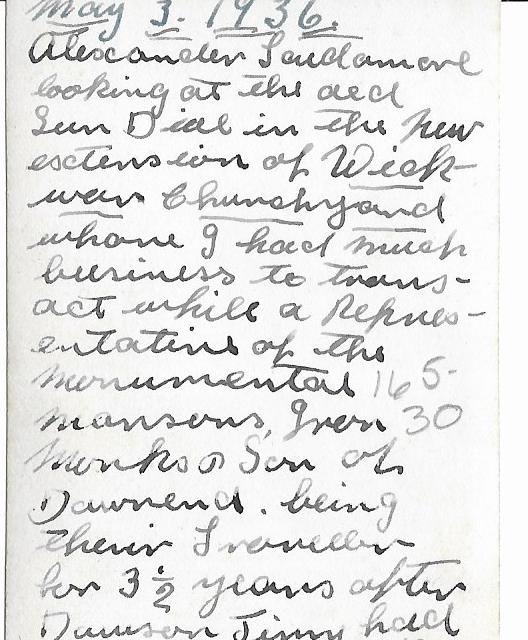 May 3. 1936.
Alexander Scudamore
looking at the old
Sun Dial in the New
extension of Wick-
war Churchyard
whore I had much
business to trans-
act while a Repres-
entative of the
monumental 165-
masons, 30
Monks & Son of
Downend. being
their Traveller
for 3½ years after
Dawson had